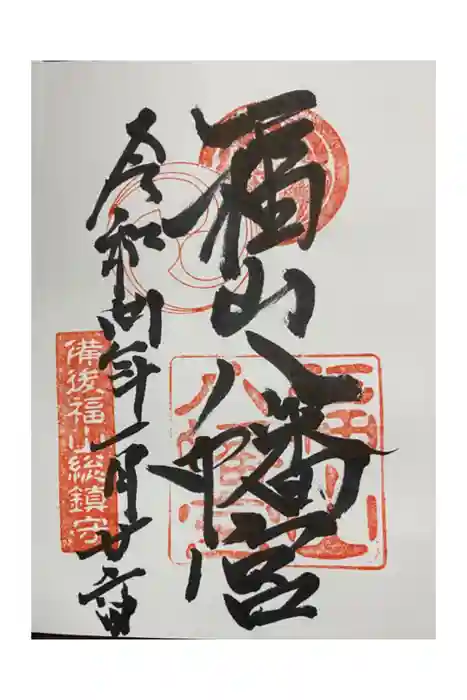 福山八幡宮
令和四年一月廿六日
備後福山総鎮守